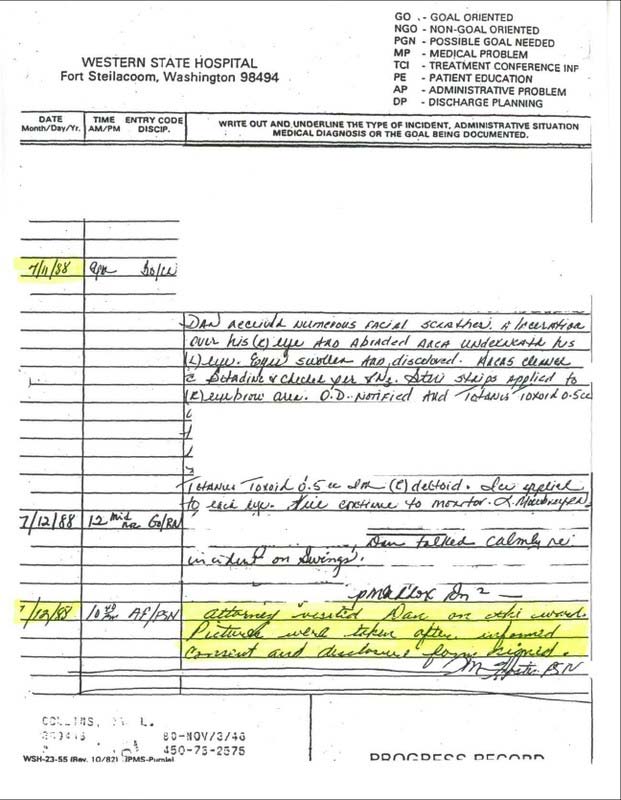 GO - GOAL ORIENTED
NGO - NON-GOAL ORIENTED
PGN - POSSIBLE GOAL NEEDED
MP - MEDICAL PROBLEM
TCI - TREATMENT CONFERENCE INF
PE - PATIENT EDUCATION
AP - ADMINISTRATIVE PROBLEM
DP - DISCHARGE PLANNING
WESTERN STATE HOSPITAL
Fort Steilacoom, Washington 98494
DATE Month/Day/Yr.
TIME AM/PM
ENTRY CODE DISCIP.
WRITE OUT AND UNDERLINE THE TYPE OF INCIDENT, ADMINISTRATIVE SITUATION
MEDICAL DIAGNOSIS OR THE GOAL BEING DOCUMENTED.
7/11/88
Dan received numerous facial scratches. A laceration
over his eye and abraded area underneath his
(L) eye. Eyes swollen and discolored. Areas cleaned
c Betadine & checked per Steri strips applied to
(R) eyebrow area. O.D. Notified and Tetanus Toxoid 0.5cc
Tetanus Toxoid 0.5 cc IM deltoid. Ice applied
to each eye. continue to monitor.
7/12/88 12 Mid GO/RN
Dan talked calmly re
incident on Swings.
7/12/88 AP/PSN Attorney visited Dan on ward.
Pictures were taken after informed
consent and disclosure form signed.
PSN
COLLINS, L.
80-NOV/3/46
450-76-2575
WSH-23-55 (Rev. 10/82)
PROGRESS RECORD